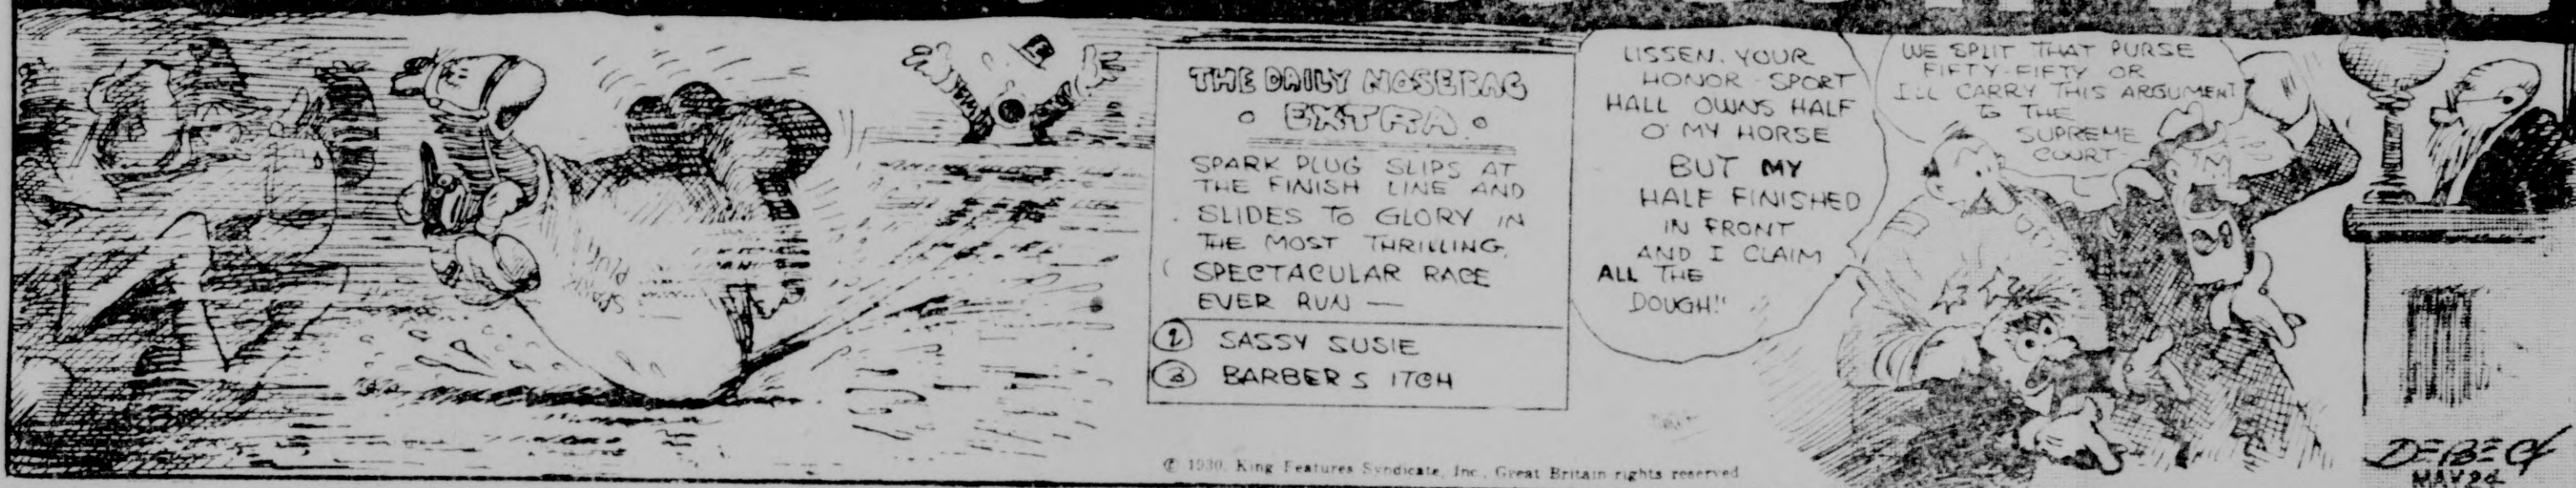 SPARK PLUG
THE DAILY NOSEBAG
EXTRA
SPARK PLUG SLIPS AT
THE FINISH LINE AND
SLIDES TO GLORY IN
THE MOST THRILLING,
SPECTACULAR RACE
EVER RUN —
2 SASSY SUSIE
3 BARBERS ITCH
LISSEN. YOUR
HONOR - SPORT
HALL OWNS HALF
O' MY HORSE
BUT MY
HALF FINISHED
IN FRONT
AND I CLAIM
ALL THE
DOUGH!!
WE SPLIT THAT PURSE
FIFTY-FIFTY OR
I'LL CARRY THIS ARGUMENT
TO THE
SUPREME
COURT-
© 1930, King Features Syndicate, Inc., Great Britain rights reserved
DEBECK
MAY 24